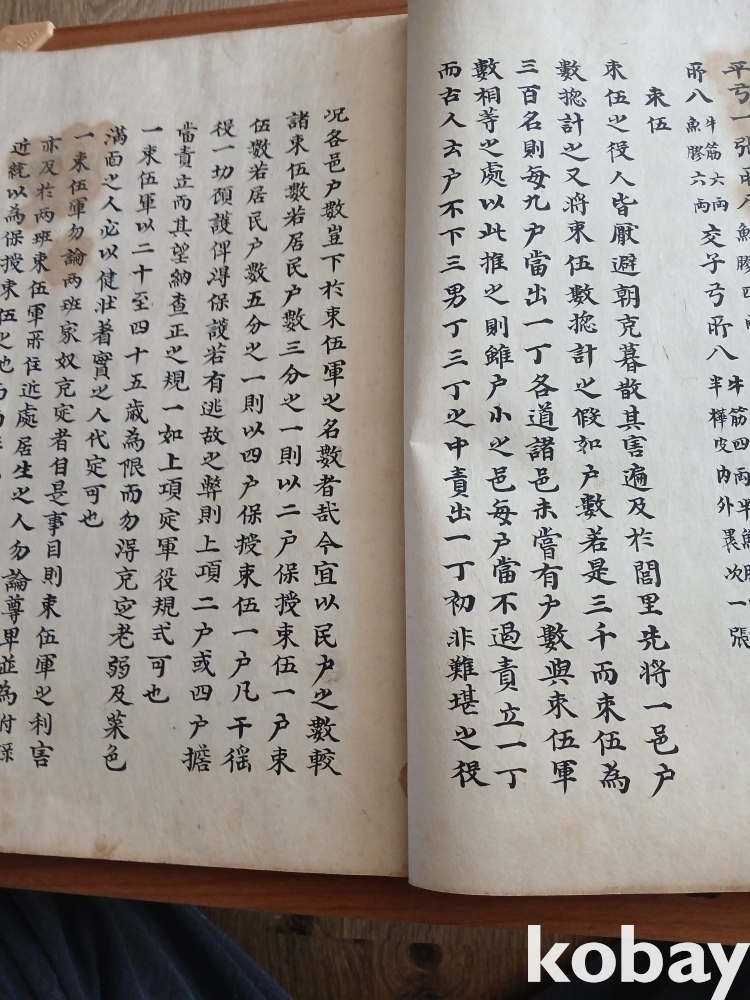 平弓一張所入魚膠四両
所入牛筋六両
魚膠六両
交子弓所入牛筋四両半魚膠
半樺皮內外畏次一張
束伍
束伍之役人皆厭避朝充暮散其害遍及於閭里先將一邑户
數揔計之又將束伍數揔計之假如户數若是三千而束伍為
三百名則每九户當出一丁各道諸邑未嘗有户數與束伍軍
數相等之處以此推之則雖户小之邑每户當不過責立一丁
而古人云户不下三男丁三丁之中責出一丁初非難堪之役
况各邑户數豈下於束伍軍之名數者哉今宜以民户之數較
諸束伍數若居民户數三分之一則以二户保授束伍一户束
伍數若居民户數五分之一則以四户保授束伍一户凡干徭
役一切顧護俾得保護若有逃故之弊則上項二户或四户擔
當責立而其望納查正之規一如上項定軍役規式可也
一束伍軍以二十至四十五歲為限而勿得充定老弱及菜色
滿面之人必以健壯著實之人代定可也
一束伍軍勿論両班家奴充定者自是事目則束伍軍之利害
亦及於両班束伍軍所住近處居生之人勿論尊卑並為付錄
近統以為保授束伍之地而
kobay